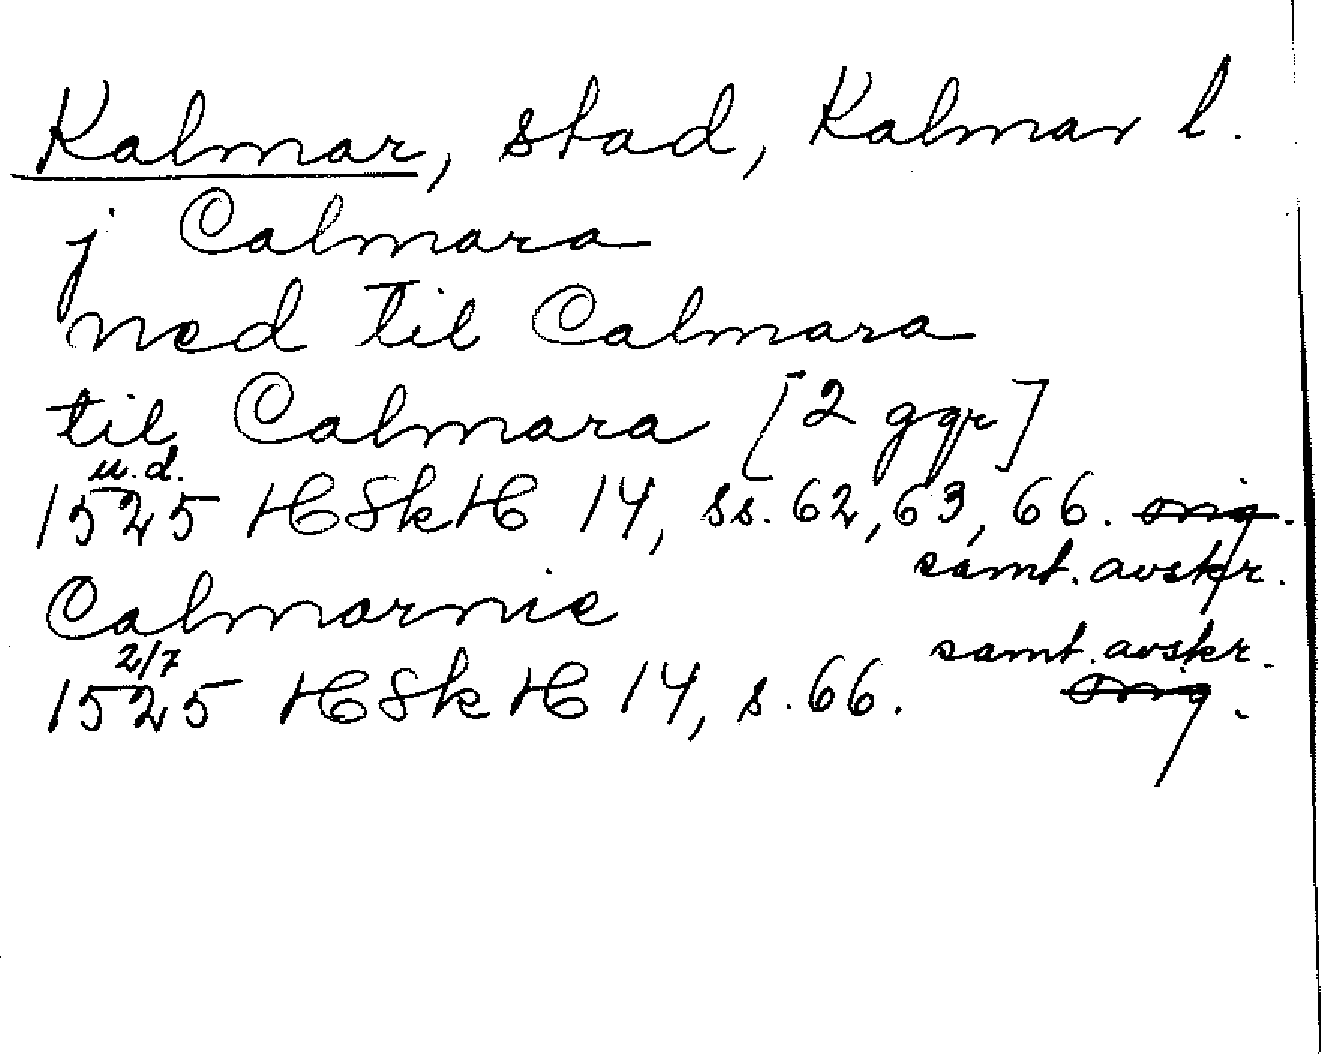 Kalmar, stad, Kalmar l.
j Calmara
ned til Calmara
til Calmara [2 ggr]
u.d.
1525 HSkH 14, ss. 62, 63, 66. orig.
samt. avskr.
Calmarnie
2/7
samt. avskr.
1525 HSkH 14, s. 66. orig.